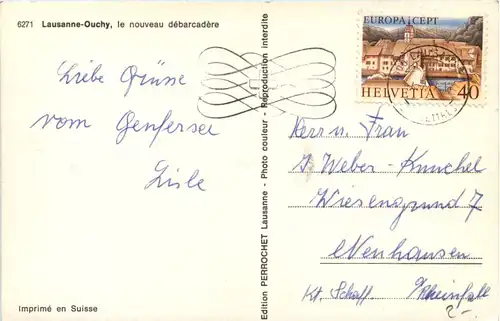 6271 Lausanne-Ouchy, le nouveau débarcadère
Liebe Grüsse
vom Genfersee
Lisle
Imprimé en Suisse
Edition PERROCHET Lausanne - Photo couleur - Reproduction interdite
EUROPA CEPT
HELVETIA 40
Herr u. Frau
Weber - Knuchel
Wiesengrund 7
Neuhausen
Kt. Schaff. Rheinfall
2.-